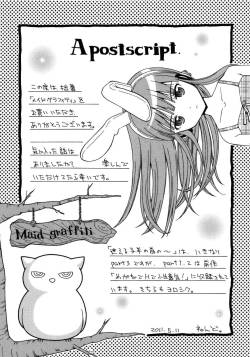 A postscript.
この度は、拙著
「メイドグラフィティ」を
お買いいただき
ありがとうございます。
気に入った話は
ありましたか? 楽しんで
いただけたなら幸いです。
Maid graffiti
は、いきなり
part3ですが、part1.2は前作
に収録されて
います。そちらもヨロシク。
2011.5.11